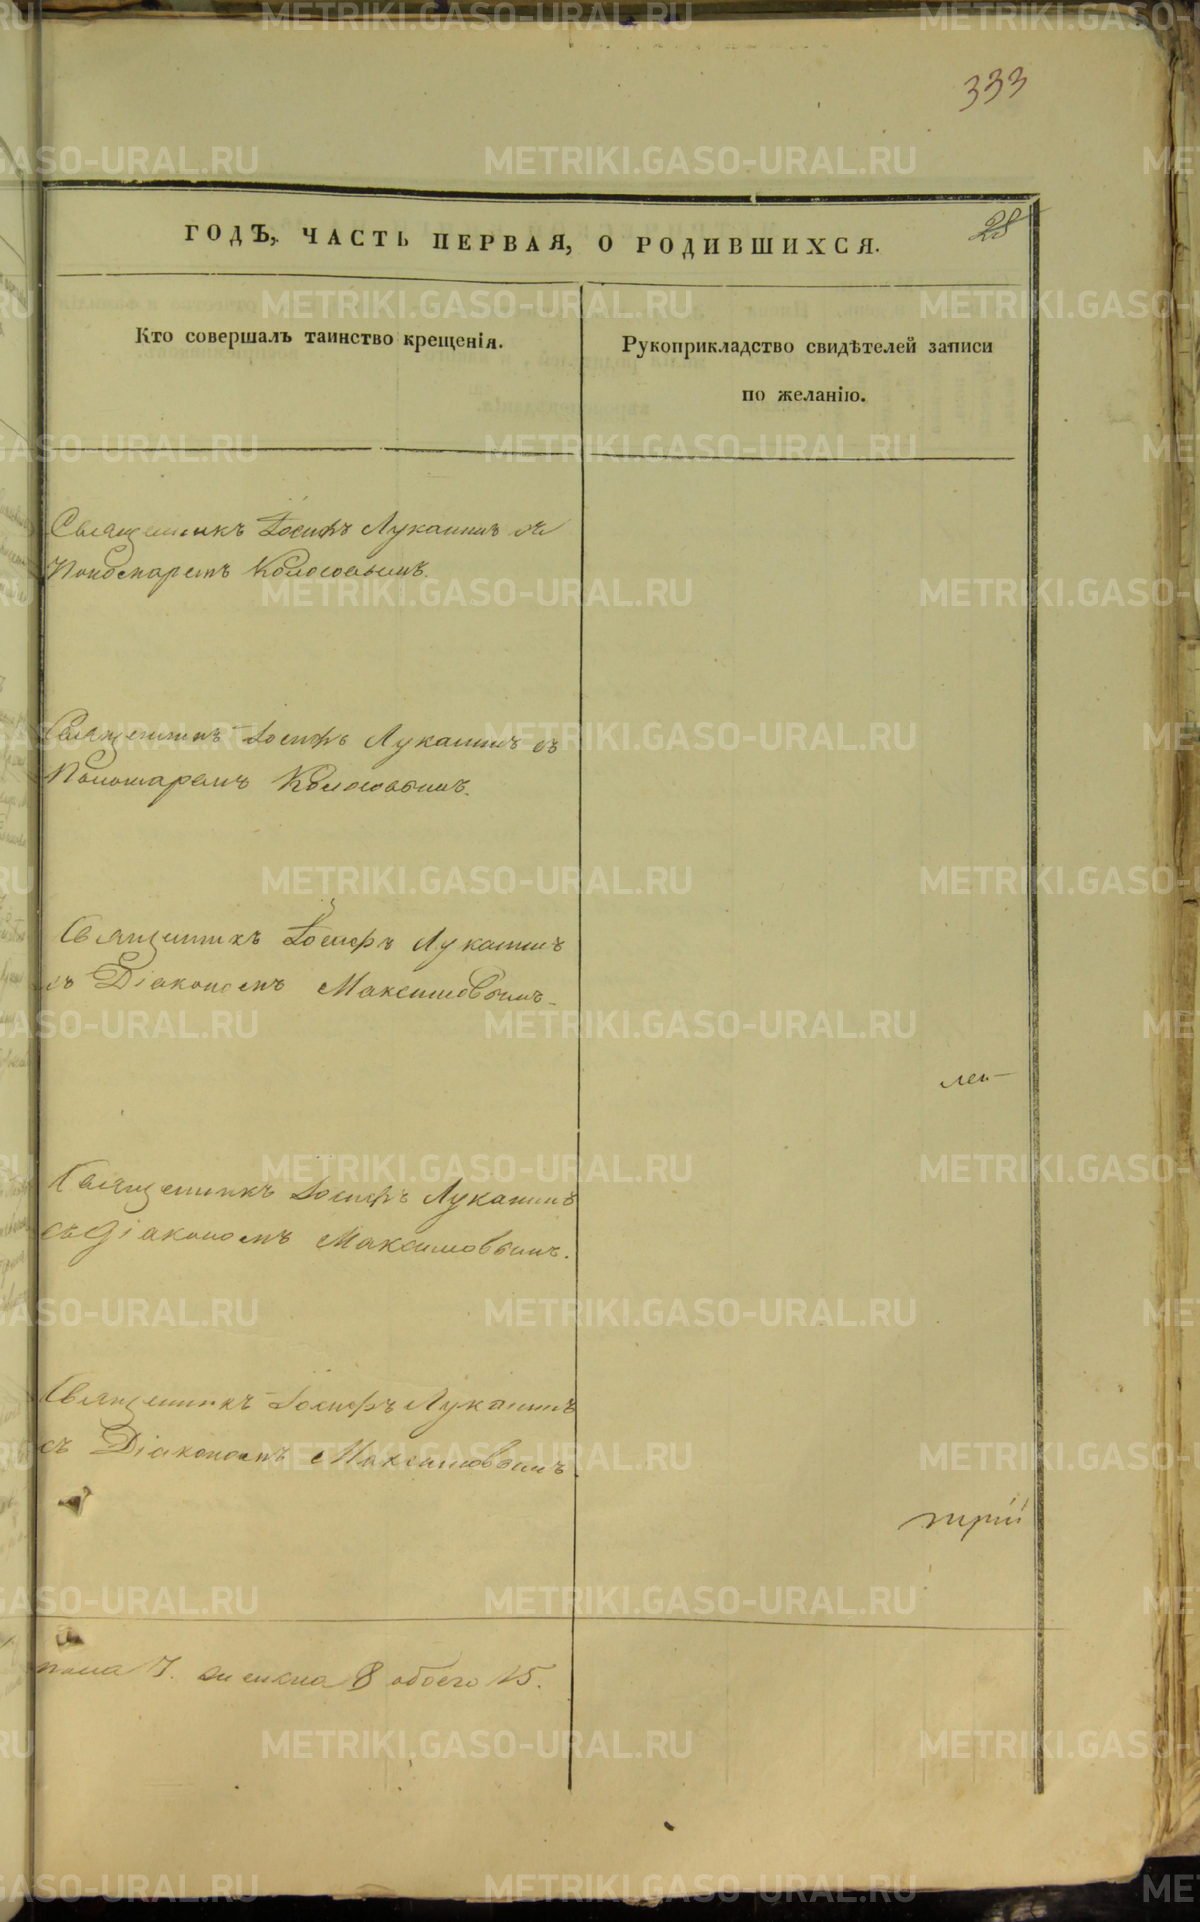 333
28
ГОДЪ, ЧАСТЬ ПЕРВАЯ, О РОДИВШИХСЯ.
Кто совершалъ таинство крещенія.
Рукоприкладство свидѣтелей записи
по желанію.
Священникъ Іосифъ Луканинъ съ
Пономаремъ Колосовымъ.
Священникъ Іосифъ Луканинъ съ
Пономаремъ Колосовымъ.
Священникъ Іосифъ Луканинъ
съ Діакономъ Максимовымъ.
лей
Священникъ Іосифъ Луканинъ
съ Діакономъ Максимовымъ.
Священникъ Іосифъ Луканинъ
съ Діакономъ Максимовымъ.
трій
пола 7. женска 8 обоего 15.
METRIKI.GASO-URAL.RU